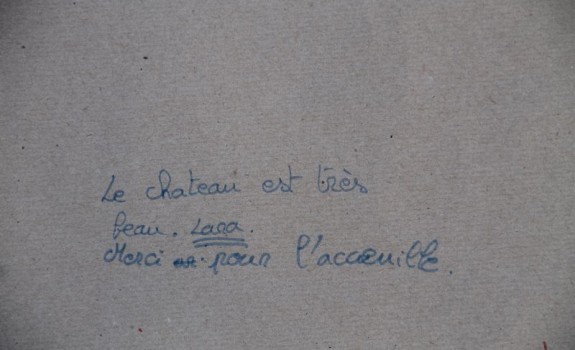 Le chateau est très
beau. Lara.
Merci pour l'accueille.